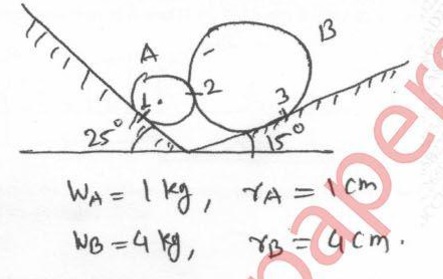 A B
1. 2 3
25° 15°
WA = 1 kg, rA = 1 cm
WB = 4 kg, rB = 4 cm.
papers